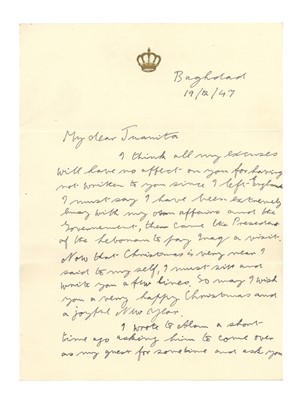 Baghdad
19/12/47
My dear Juanita
I think all my excuses
will have no affect on you for having
not written to you since I left England
I must say I have been extremely
busy with my own affairs and the
Government, then came the President
of the Lebanon to pay Iraq a visit.
Now that Christmas is very near I
said to my self, I must sit and
write you a few lines. So may I wish
you a very happy Christmas and
a joyful New Year.
I wrote to Alan a short
time ago asking him to come over
as my guest for sometime and ask you